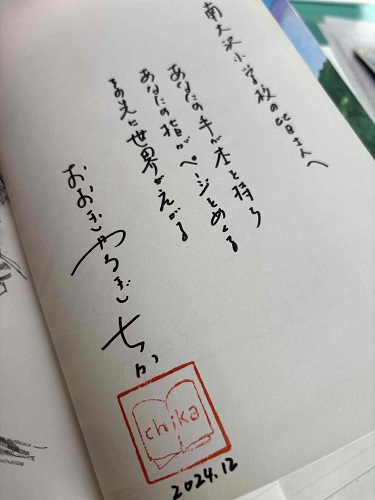 南大沢小学校の皆さんへ
あなたの手が本を持ち
あなたの指がページをめくる
その先に世界がえがる
おおぎやなぎちか
chika
2024.12